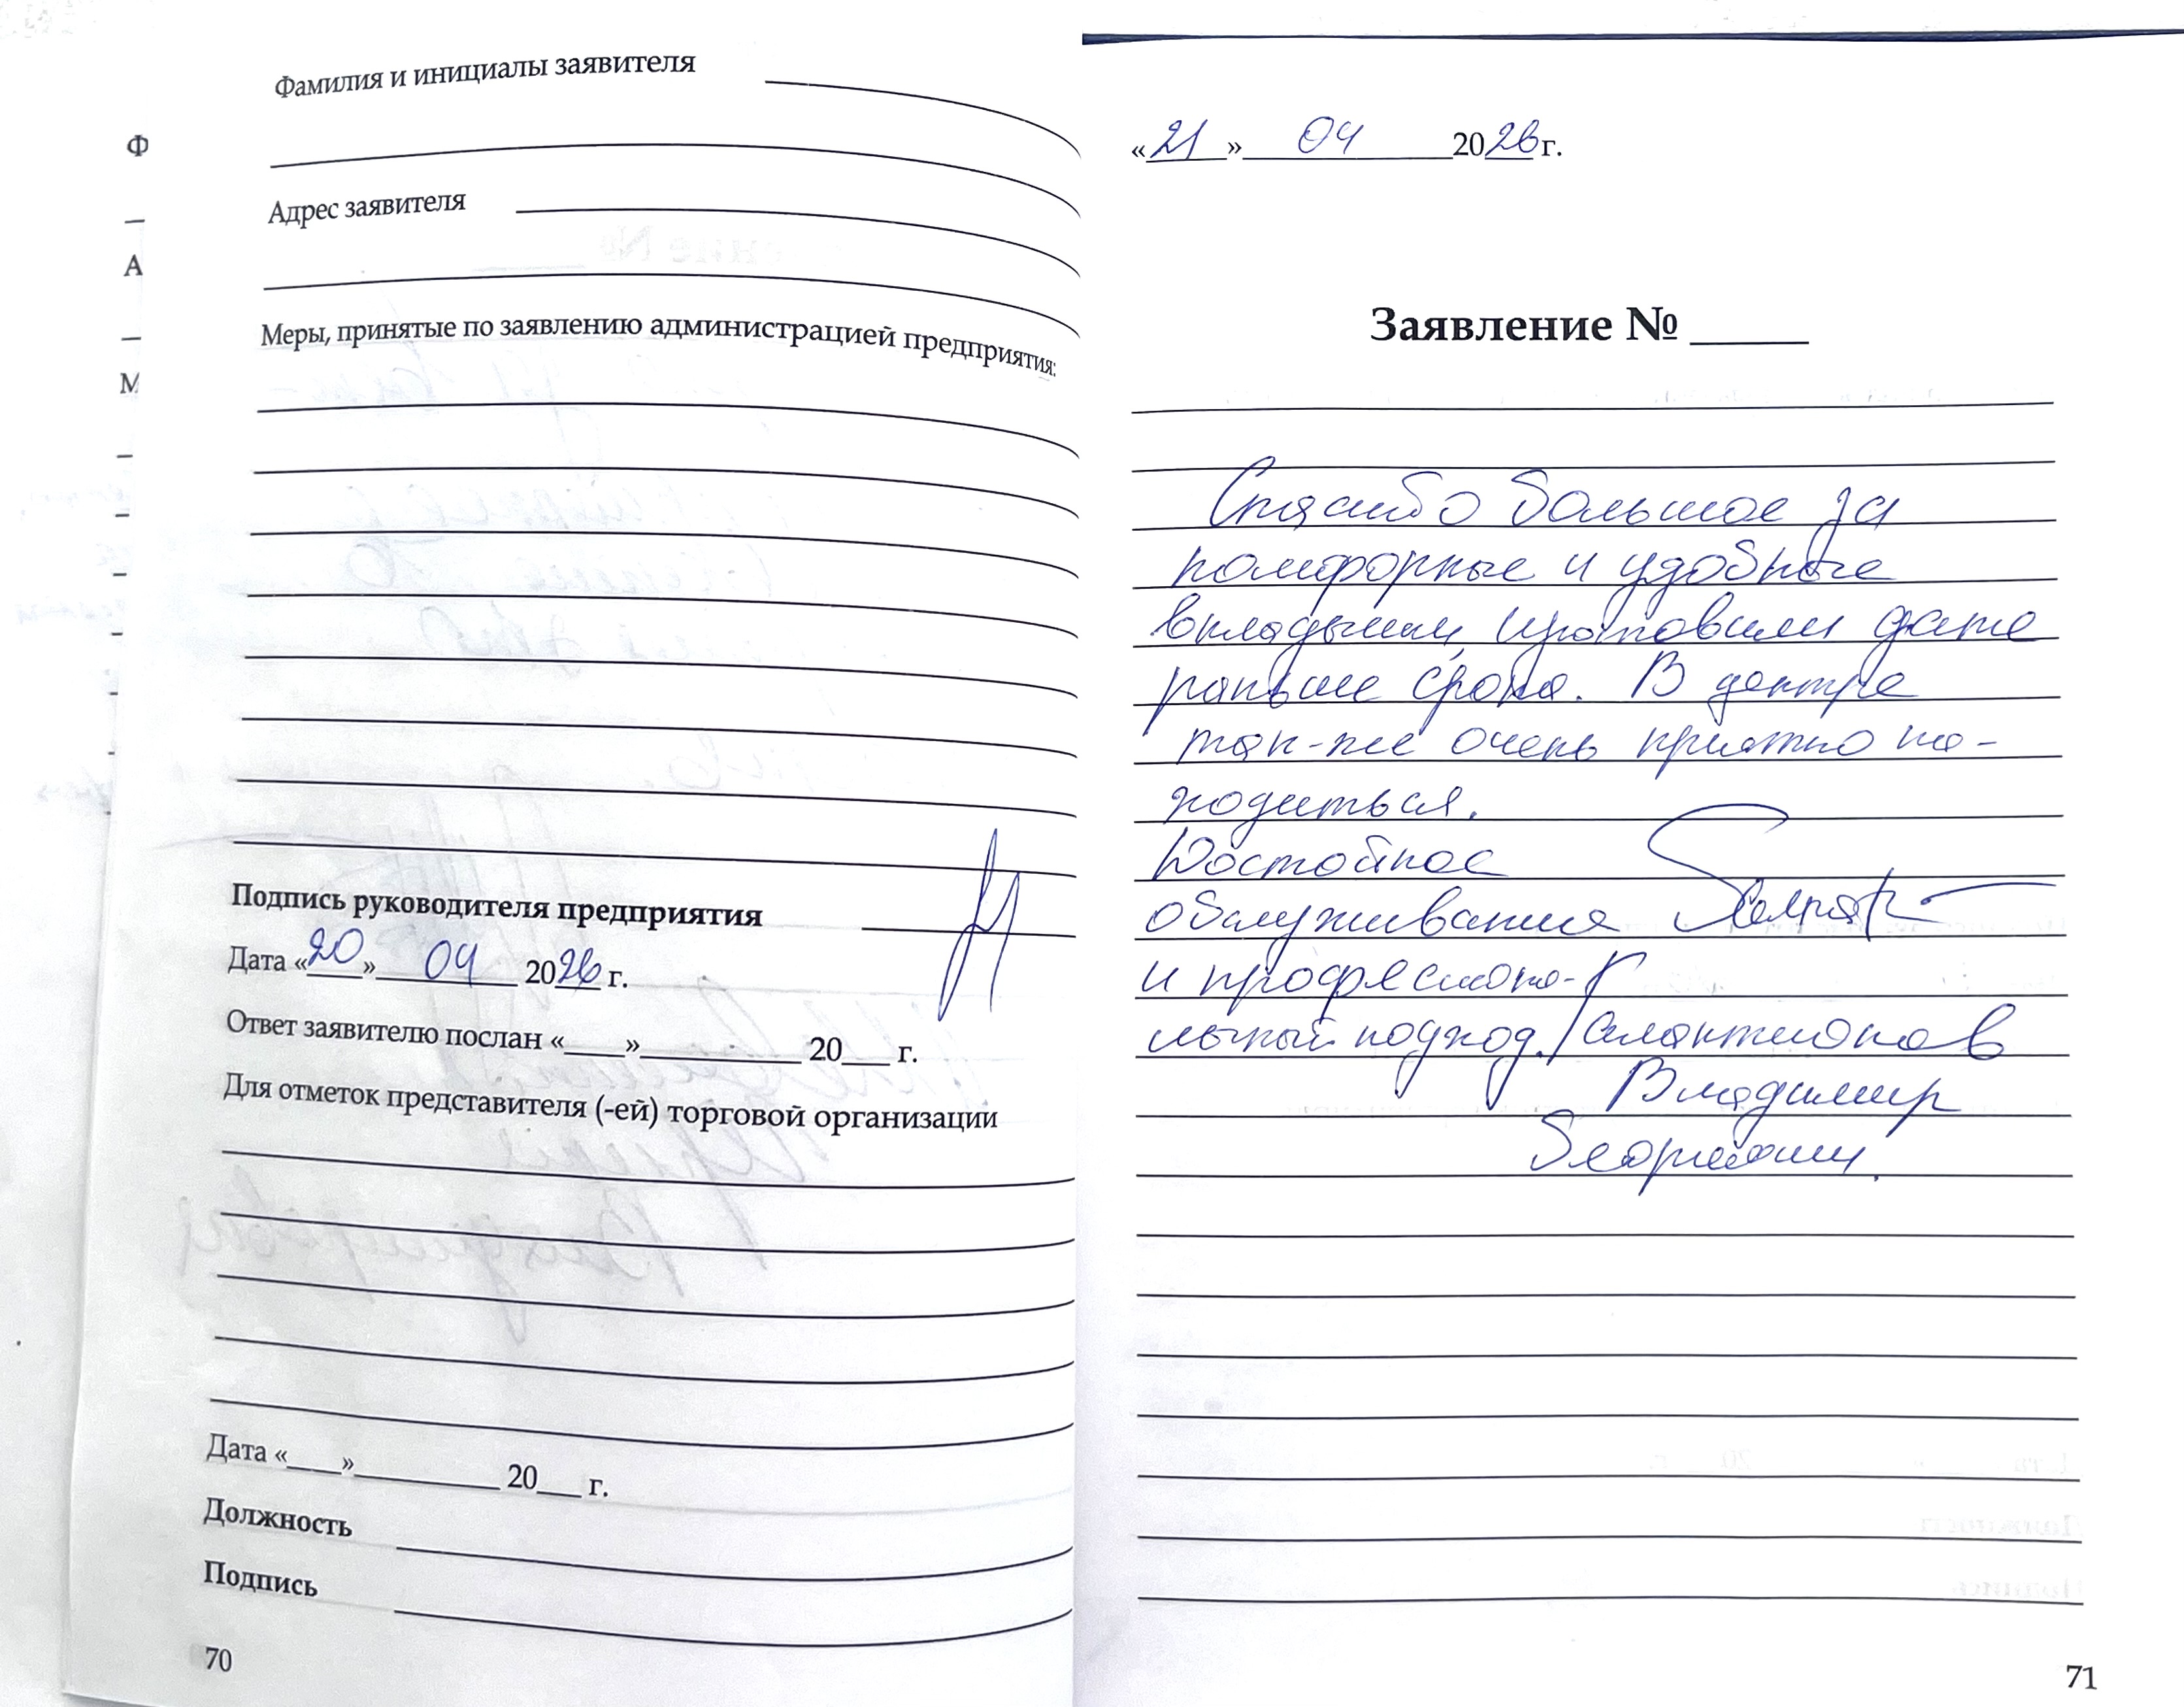 Фамилия и инициалы заявителя
Адрес заявителя
Меры, принятые по заявлению администрацией предприятия:
Подпись руководителя предприятия
Дата «20» 04 2026 г.
Ответ заявителю послан «___»________ 20___ г.
Для отметок представителя (-ей) торговой организации
Дата «___»________ 20___ г.
Должность
Подпись
70
Ф
А
М
«21» 04 2026 г.
Заявление № _____
Спасибо большое за
комфорные и удобные
вкладыши, изготовили даже
раньше срока. В центре
так-же очень приятно на-
ходиться.
Достойное
обслуживания
и профессиона-
льный подход.
Владимир
71